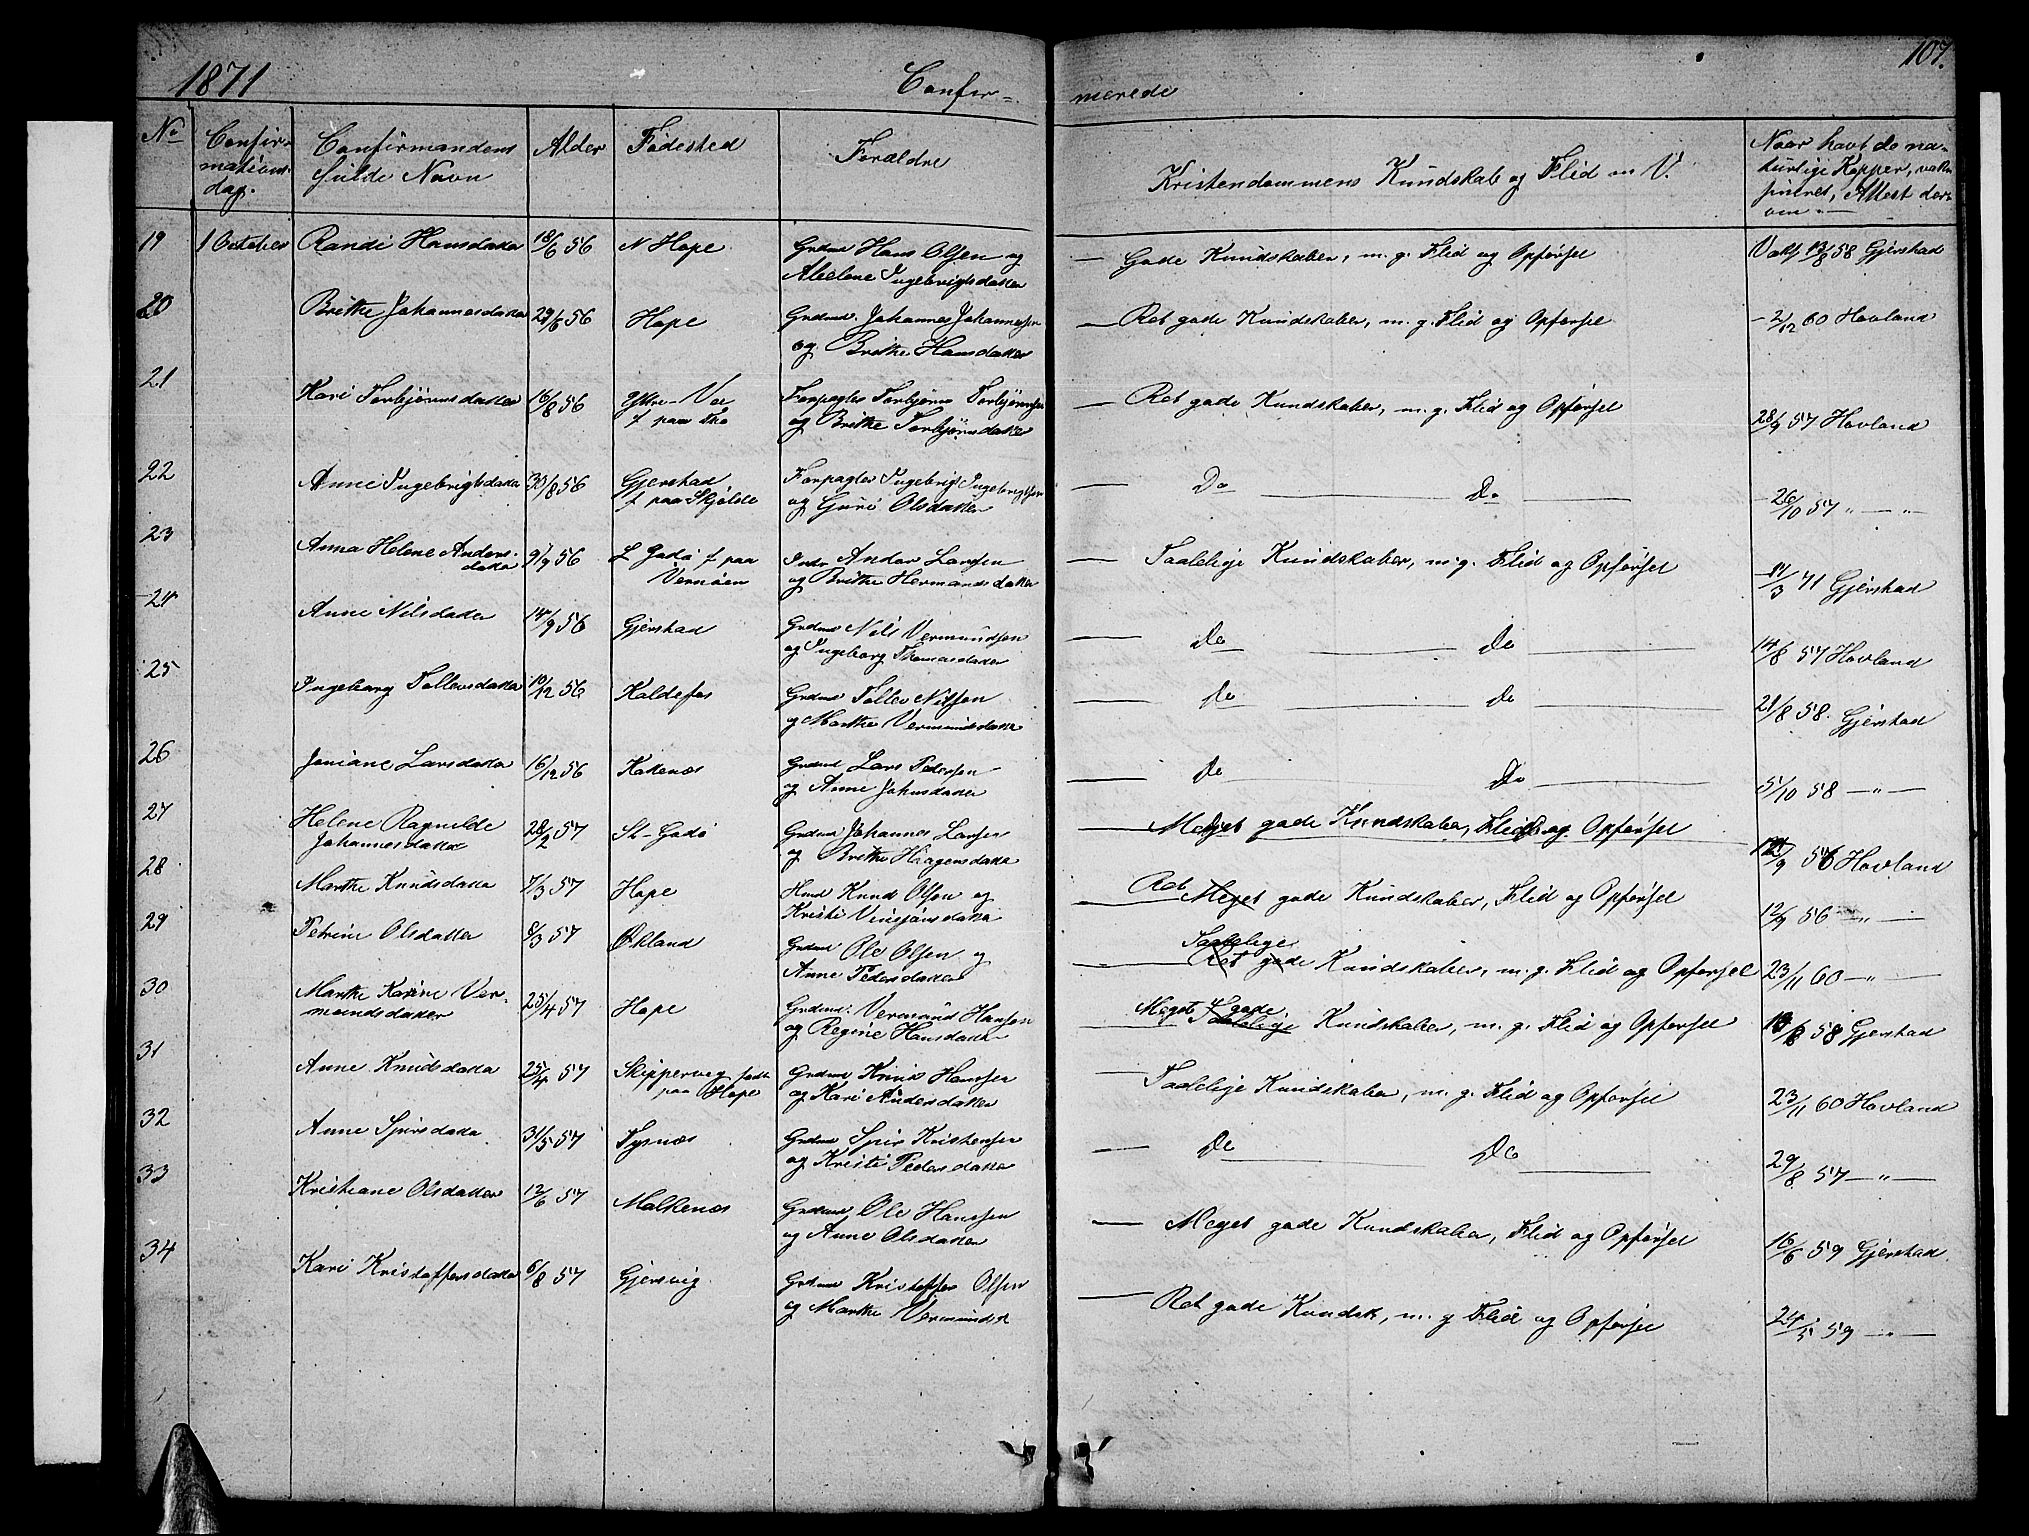 1871 Confir- merede 107.
No Confir- mations- dag. Confirmandens fulde Navn Alder Fødested Forældre Kristendommens Kundskab og Flid m V. Naar havt de na- turlige Kopper, vakci- sineret, Attest der- om
19 1 October Randi Hansdatter 18/6 56 N Hope Grdmd Hans Olsen og — Gode Kundskaber, m. g. Flid og Opførsel Vakc 13/8 58 Gjerstad
Abelone Ingebrigtsdatter
20 Brithe Johannesdatter 29/6 56 Hope Grdmd. Johannes Johannessen — Ret gode Kundskaber, m. g. Flid og Opførsel — 2/12 60 Hovland
og Brithe Hansdatter
21 Kari Torbjørnsdatter 16/8 56 Yttre-Vee Forpagter Torbjørn Torbjørnsen — Ret gode Kundskaber, m. g. Flid og Opførsel 28/9 57 Hovland
f paa og Brithe Torbjørnsdatter
22 Anne Ingebrigtsdatter 30/8 56 Gjerstad Forpagter Ingebrigt Ingebrigtsen — Do — Do — 26/10 57 " — "
f paa Skjelde og Guri Olsdatter
23 Anna Helene Anders- datter 9/9 56 L Godø f paa Indr Andor Larsen — Taalelige Kundskaber, m. g. Flid og Opførsel 14/3 71 Gjerstad
Vernøen og Brithe Hermandsdatter
24 Anne Nilsdatter 14/9 56 Gjerstad Grdmd Nils Vermundsen — Do — Do — 14/8 57 Hovland
og Ingeborg Thomasdatter
25 Ingeborg Tollevsdatter 10/12 56 Kaldefos Grdmd Tollev Nilsen — Do — Do — 21/8 58. Gjerstad
og Marthe Vermundsdatter
26 Joniane Larsdatter 16/12 56 Kakenæs Grdmd Lars Pedersen — Do — Do — 5/10 58 — " —
og Anne Johnsdatter
27 Helene Ragnilde 28/2 57 St-Godø Grdmd Johannes Larsen — Meget gode Kundskaber, Flid og Opførsel /9 56 Hovland
Johannesdatter og Brithe Haagensdatter
28 Marthe Knudsdatter 7/3 57 Hope Husmd Knud Olsen og — Ret Meget gode Kundskaber, Flid og Opførsel 12/9 56 — " —
Kristi Vinsjansdatter
29 Petrine Olsdatter 8/3 57 Økland Grdmd Ole Olsen og — Taalelige Ret gode Kundskaber, m. g. Flid og Opførsel 23/11 60 — " —
Anne Pedersdatter
30 Marthe Karine Ver- 25/4 57 Hope Grdmd: Vermund Hansen — Meget gode Taalelige Kundskaber, m. g. Flid og Opførsel 13/8 58 Gjerstad
mundsdatter og Regine Hansdatter
31 Anne Knudsdatter 25/4 57 Skippervig født Grdmd Knud Hansen — Taalelige Kundskaber, m. g. Flid og Opførsel 23/11 60 Hovland
paa Hope og Kari Andersdatter
32 Anne Spirsdatter 31/5 57 Tysnæs Grdmd Spir Kristensen — Do — Do — 29/8 57 — " —
og Kristi Pedersdatter
33 Kristiane Olsdatter 12/6 57 Malkenæs Grdmd Ole Hanssen — Meget gode Kundskaber, Flid og Opførsel 16/6 59 Gjerstad
og Anne Olsdatter
34 Kari Kristoffersdatter 6/8 57 Gjersvig Grdmd Kristoffer Olsen — Ret gode Kundsk, m. g Flid og Opførsel 24/5 59 — " —
og Marthe Vermundsd